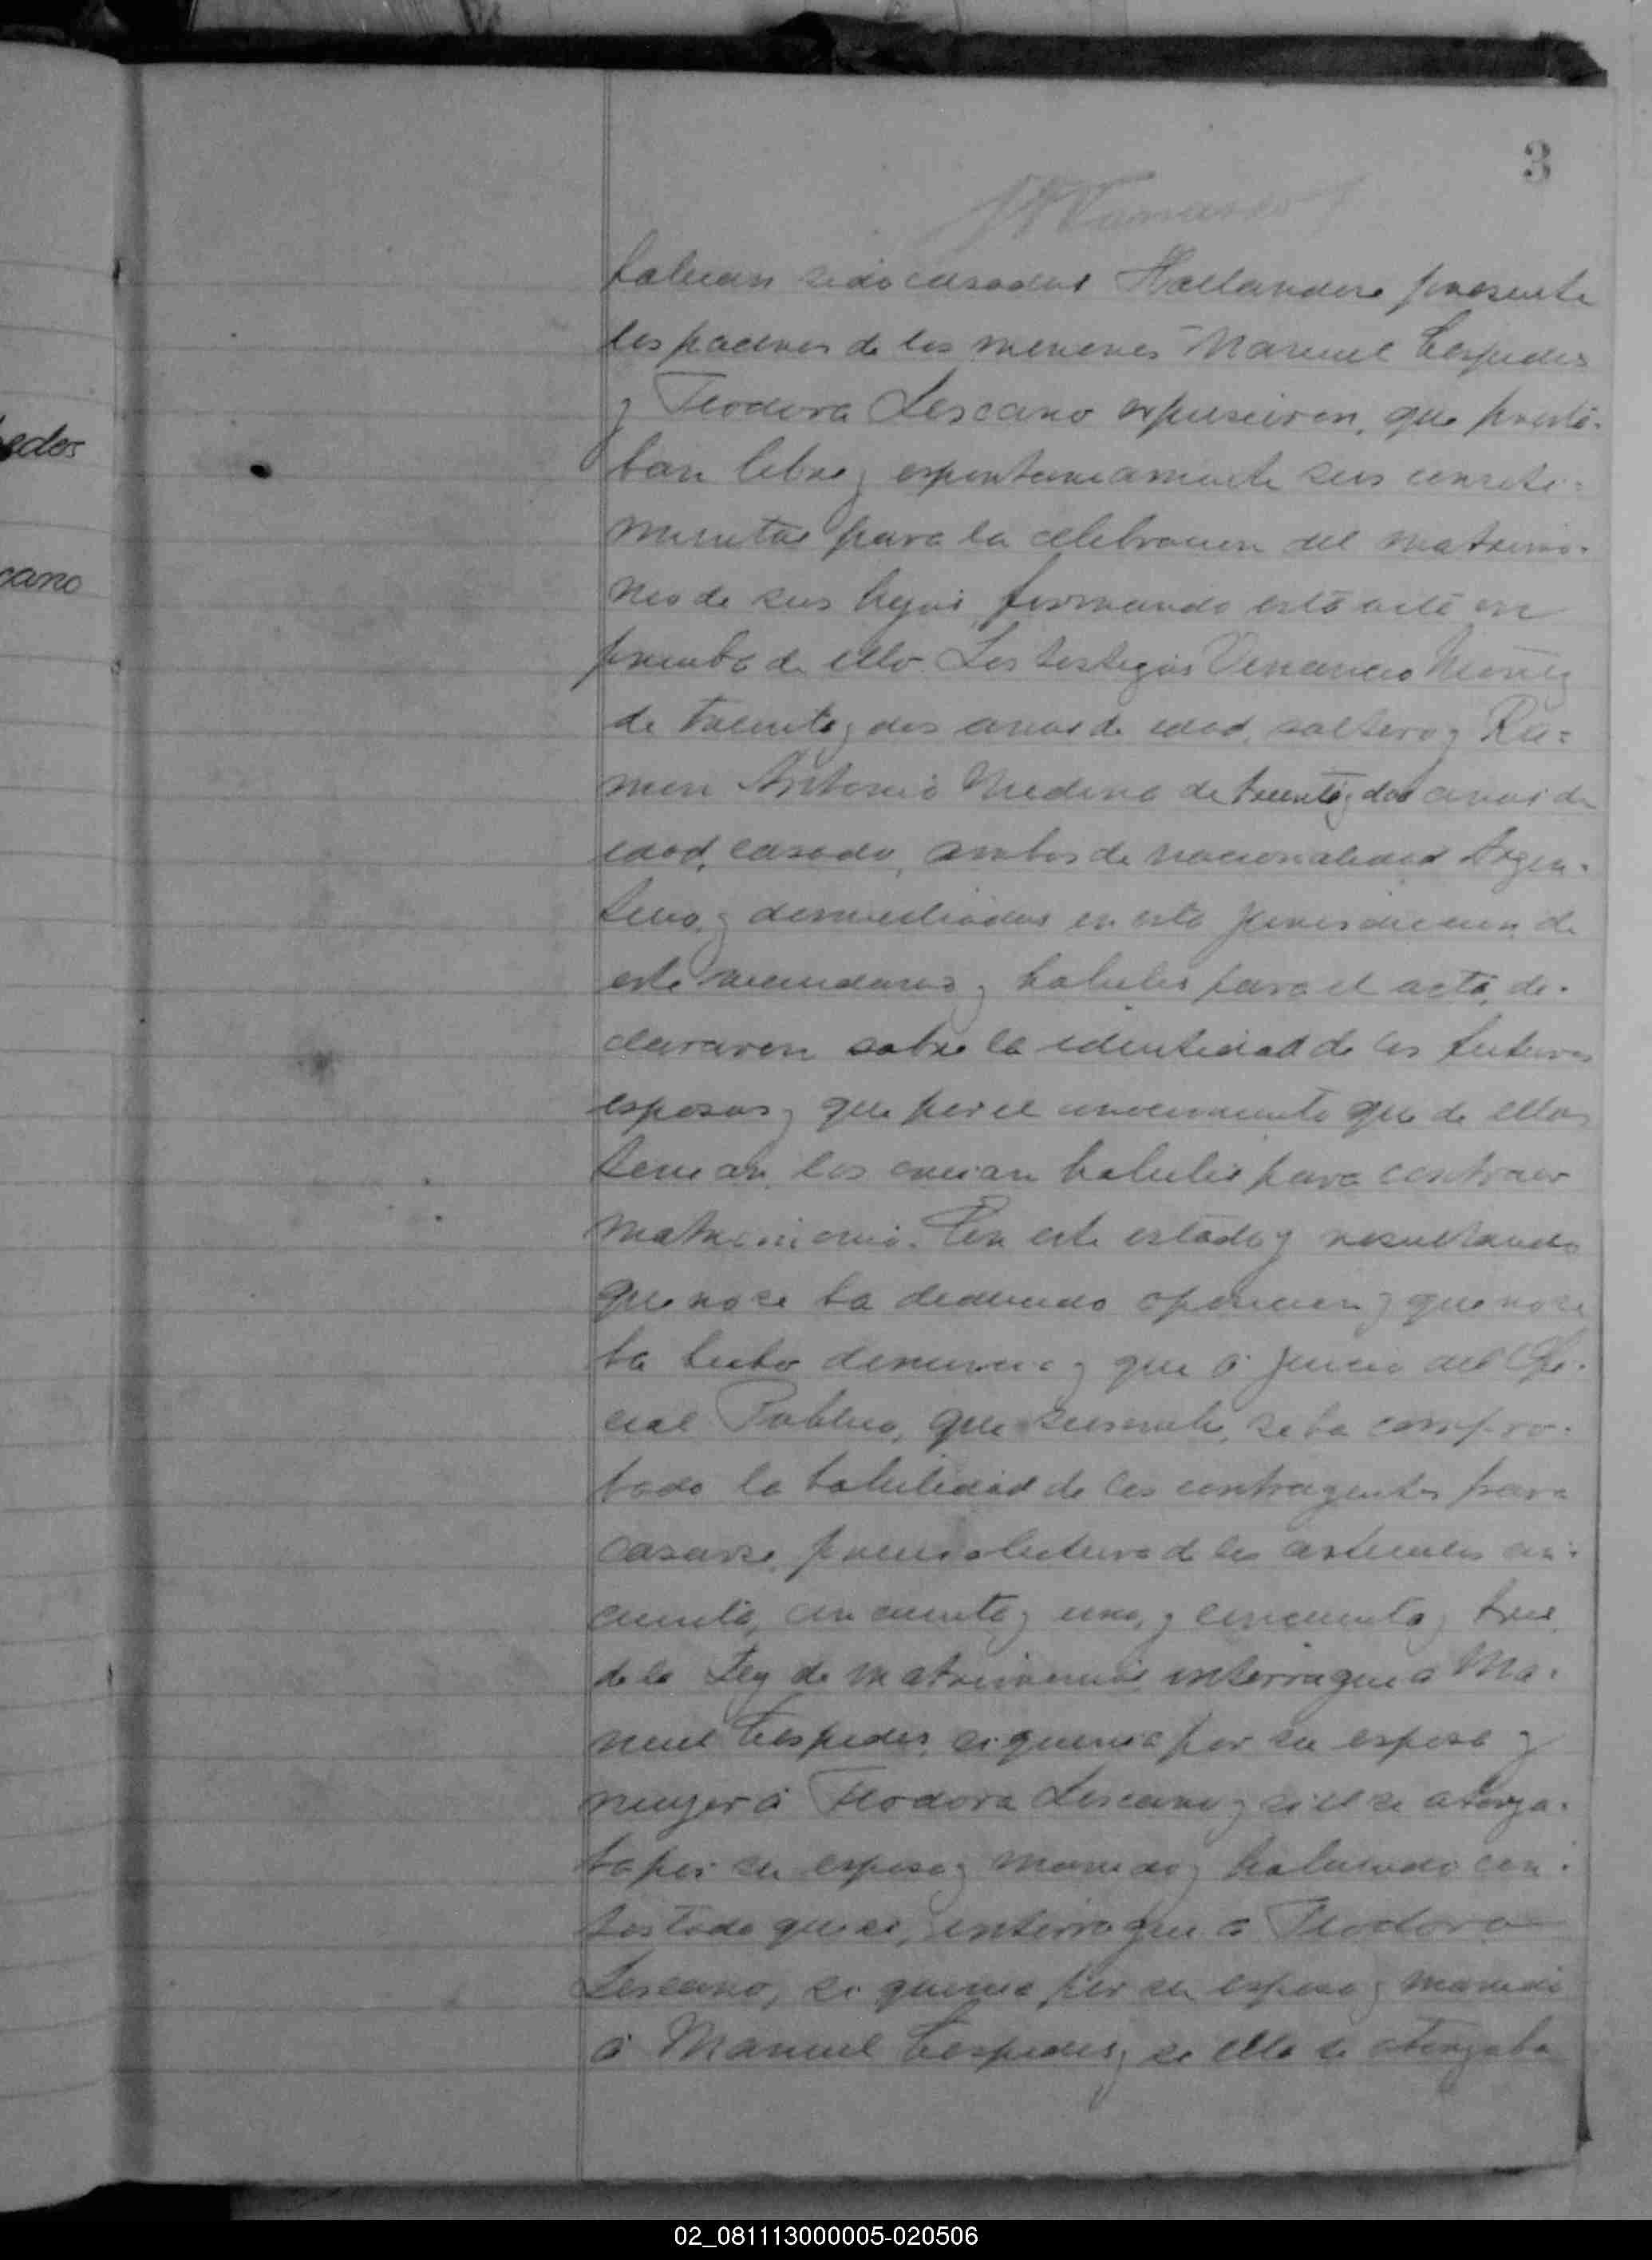 3
edes
cano
habian sido casados Hallandose presente
los padres de los menores Manuel Cespedes
y Teodora Lescano expusieron, que presta-
ban libre y espontaneamente sus consenti-
mientos para la celebracion del matrimo-
nio de sus hijos, firmando esta acta en
prueba de ello. Los testigos Venancio Nuñez
de treinta y dos anos de edad, soltero y Ra-
mon Antonio Medina de treinta y dos anos de
edad, casado, ambos de nacionalidad Argen-
tino, y domiciliados en esta jurisdiccion de
este y habiles para el acto, de-
clararon sobre la identidad de los futuros
esposos y que por el conocimiento que de ellos
tenian, los creian habiles para contraer
matrimonio. En este estado y resultando
que no se ha deducido oposicion y que no se
ha hecho denuncia y que á juicio del Ofi-
cial Publico, que suscribe, se ha compro-
bado la habilidad de los contrayentes para
casarse, previa lectura de los articulos cin-
cuenta, cincuenta y uno, y cincuenta y tres
de la Ley de matrimonio interrogue a Ma-
nuel Cespedes, si queria por su esposa y
muger á Teodora Lescano y si el se otorga-
ba por su esposo y marido y habiendo con-
testado que si, interrogue a Teodora
Lescano, si queria por su esposo y marido
á Manuel Cespedes y si ella se otorgaba
02_081113000005-020506